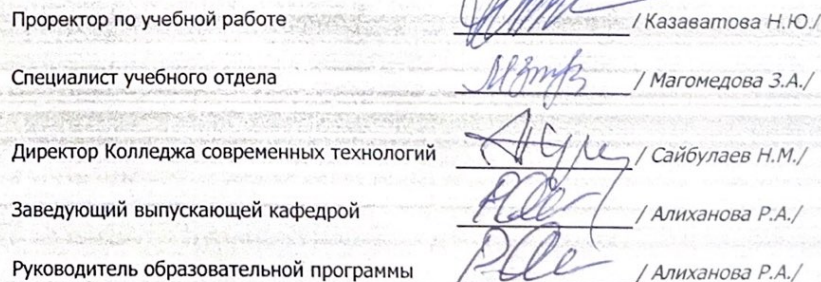 Проректор по учебной работе / Казаватова Н.Ю./
Специалист учебного отдела / Магомедова З.А./
Директор Колледжа современных технологий / Сайбулаев Н.М./
Заведующий выпускающей кафедрой / Алиханова Р.А./
Руководитель образовательной программы / Алиханова Р.А./